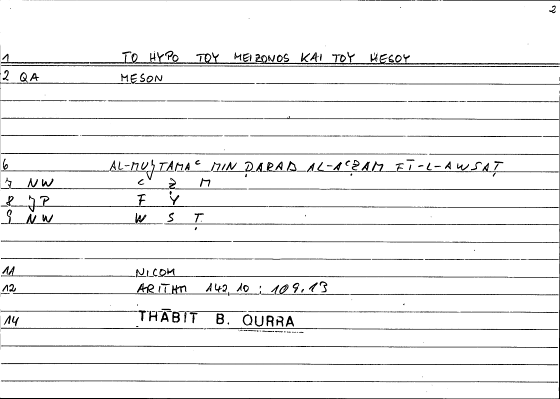 2
1 TO HYPO TOY MEIZONOS KAI TOY MESOY
2 QA MESON
6 AL-MUǦTAMAʿ MIN ḌARAB AL-AʿẒAM FĪ-L-AWSAṬ
7 NW ʿ Ẓ M
8 ǦP F Y
9 NW W S Ṭ
11 NICOM
12 ARITHM 142,10 : 109,13
14 THĀBIT B. QURRA